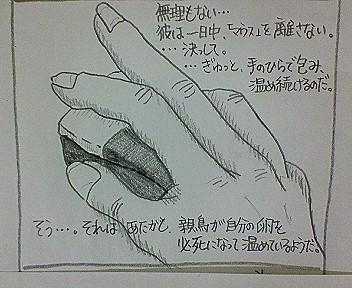 無理もない…
彼は一日中、「マウス」を離さない。
…決して。
…ぎゅっと、手のひらで包み、
温め続けるのだ。
そう…。それは あたかも、親鳥が自分の卵を
必死になって温めているようだ。